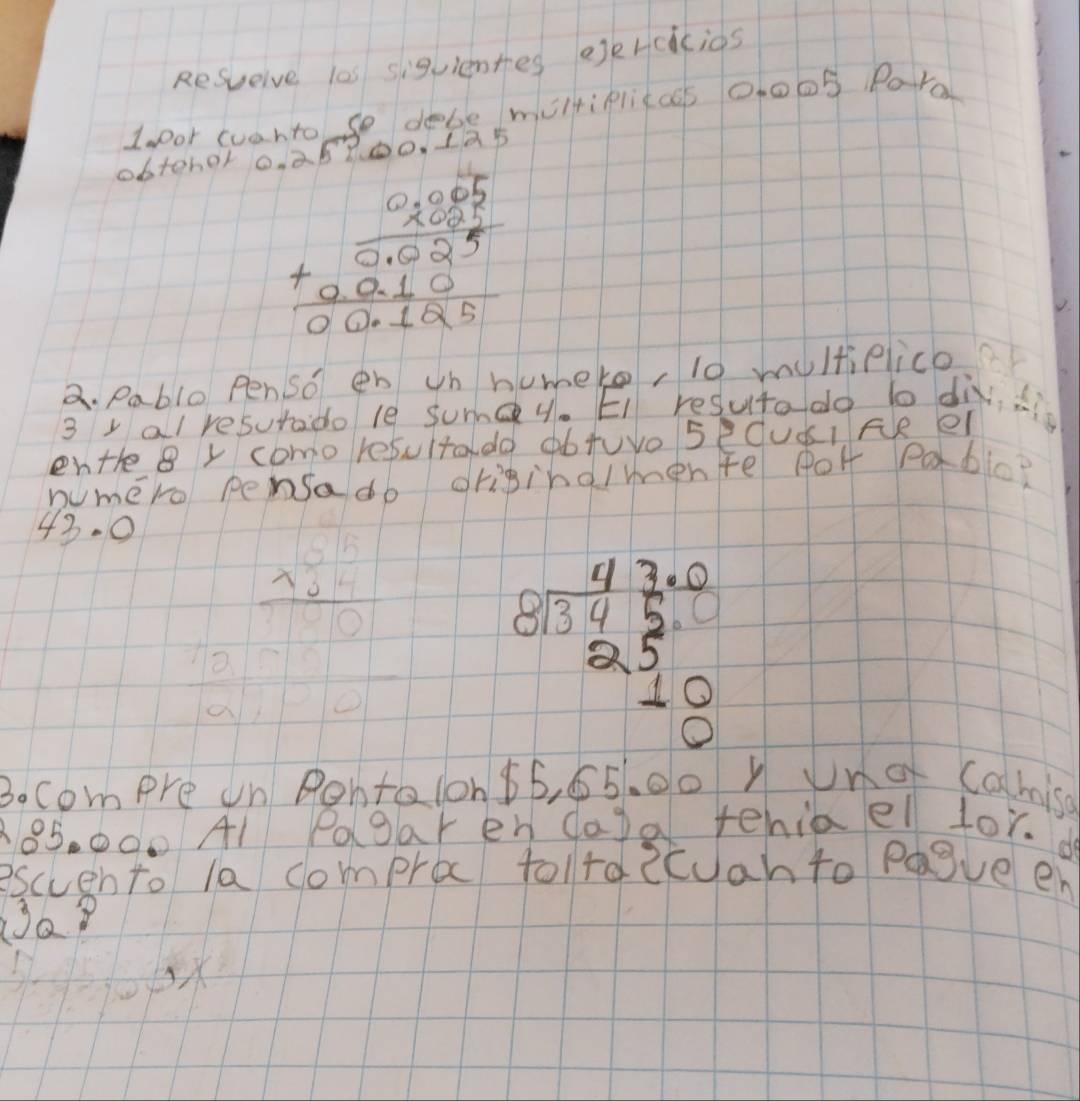 Resuelve los siguientes ejercicios
1. por cuanto se debe multiplicas 0.005 Para
obtener 0.25? 00.125
0.005
x025
0.025
+ 00.10
00.125
2. Pablo Pensó en un numero, lo multiplico
3 y al resutado le suma 4. El resultado lo divide
entre 8 y como resultado obtuvo 5 ¿cual Fue el
numéro Pensado originalmente por Pablo?
43.0
85
x34
43.0
8 345.0
25
10
0
3. compre un Pontalon $5,65.00 y una camisa
285.000. Al Pagar en caja tenia el 10%. de
escuento la compra tolta ¿cuanto Pague en
aja?